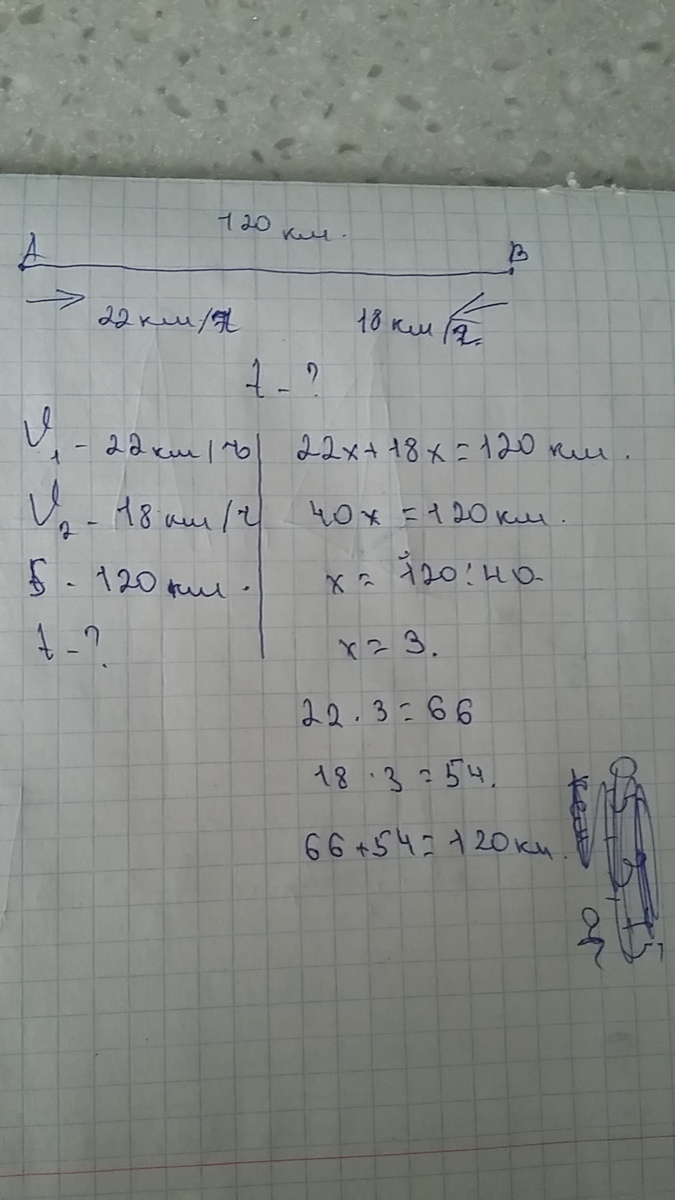 120 км.
A B
22 км/ч 18 км/ч.
t - ?
V₁ - 22 км/ч
V₂ - 18 км/ч
S - 120 км.
t - ?
22x + 18x = 120 км.
40x = 120 км.
x = 120 : 40.
x = 3.
22 · 3 = 66
18 · 3 = 54.
66 + 54 = 120 км.